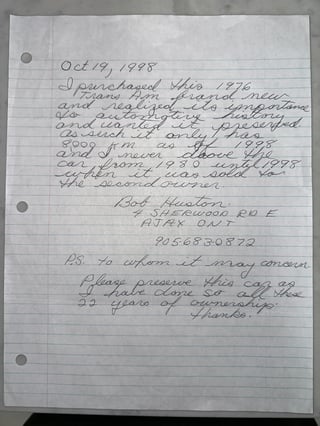 Oct 19, 1998
I purchased this 1976
Trans Am brand new
and realized its importance
to automotive history
and wanted it preserved
as such it only has
8000 km as of 1998
and I never drove the
car from 1980 until 1998
when it was sold to
the second owner
Bob Huston
4 SHERWOOD RD E
AJAX ONT
905 683-0872
P.S. To whom it may concern
Please preserve this car as
I have done so all these
22 years of ownership.
Thanks.